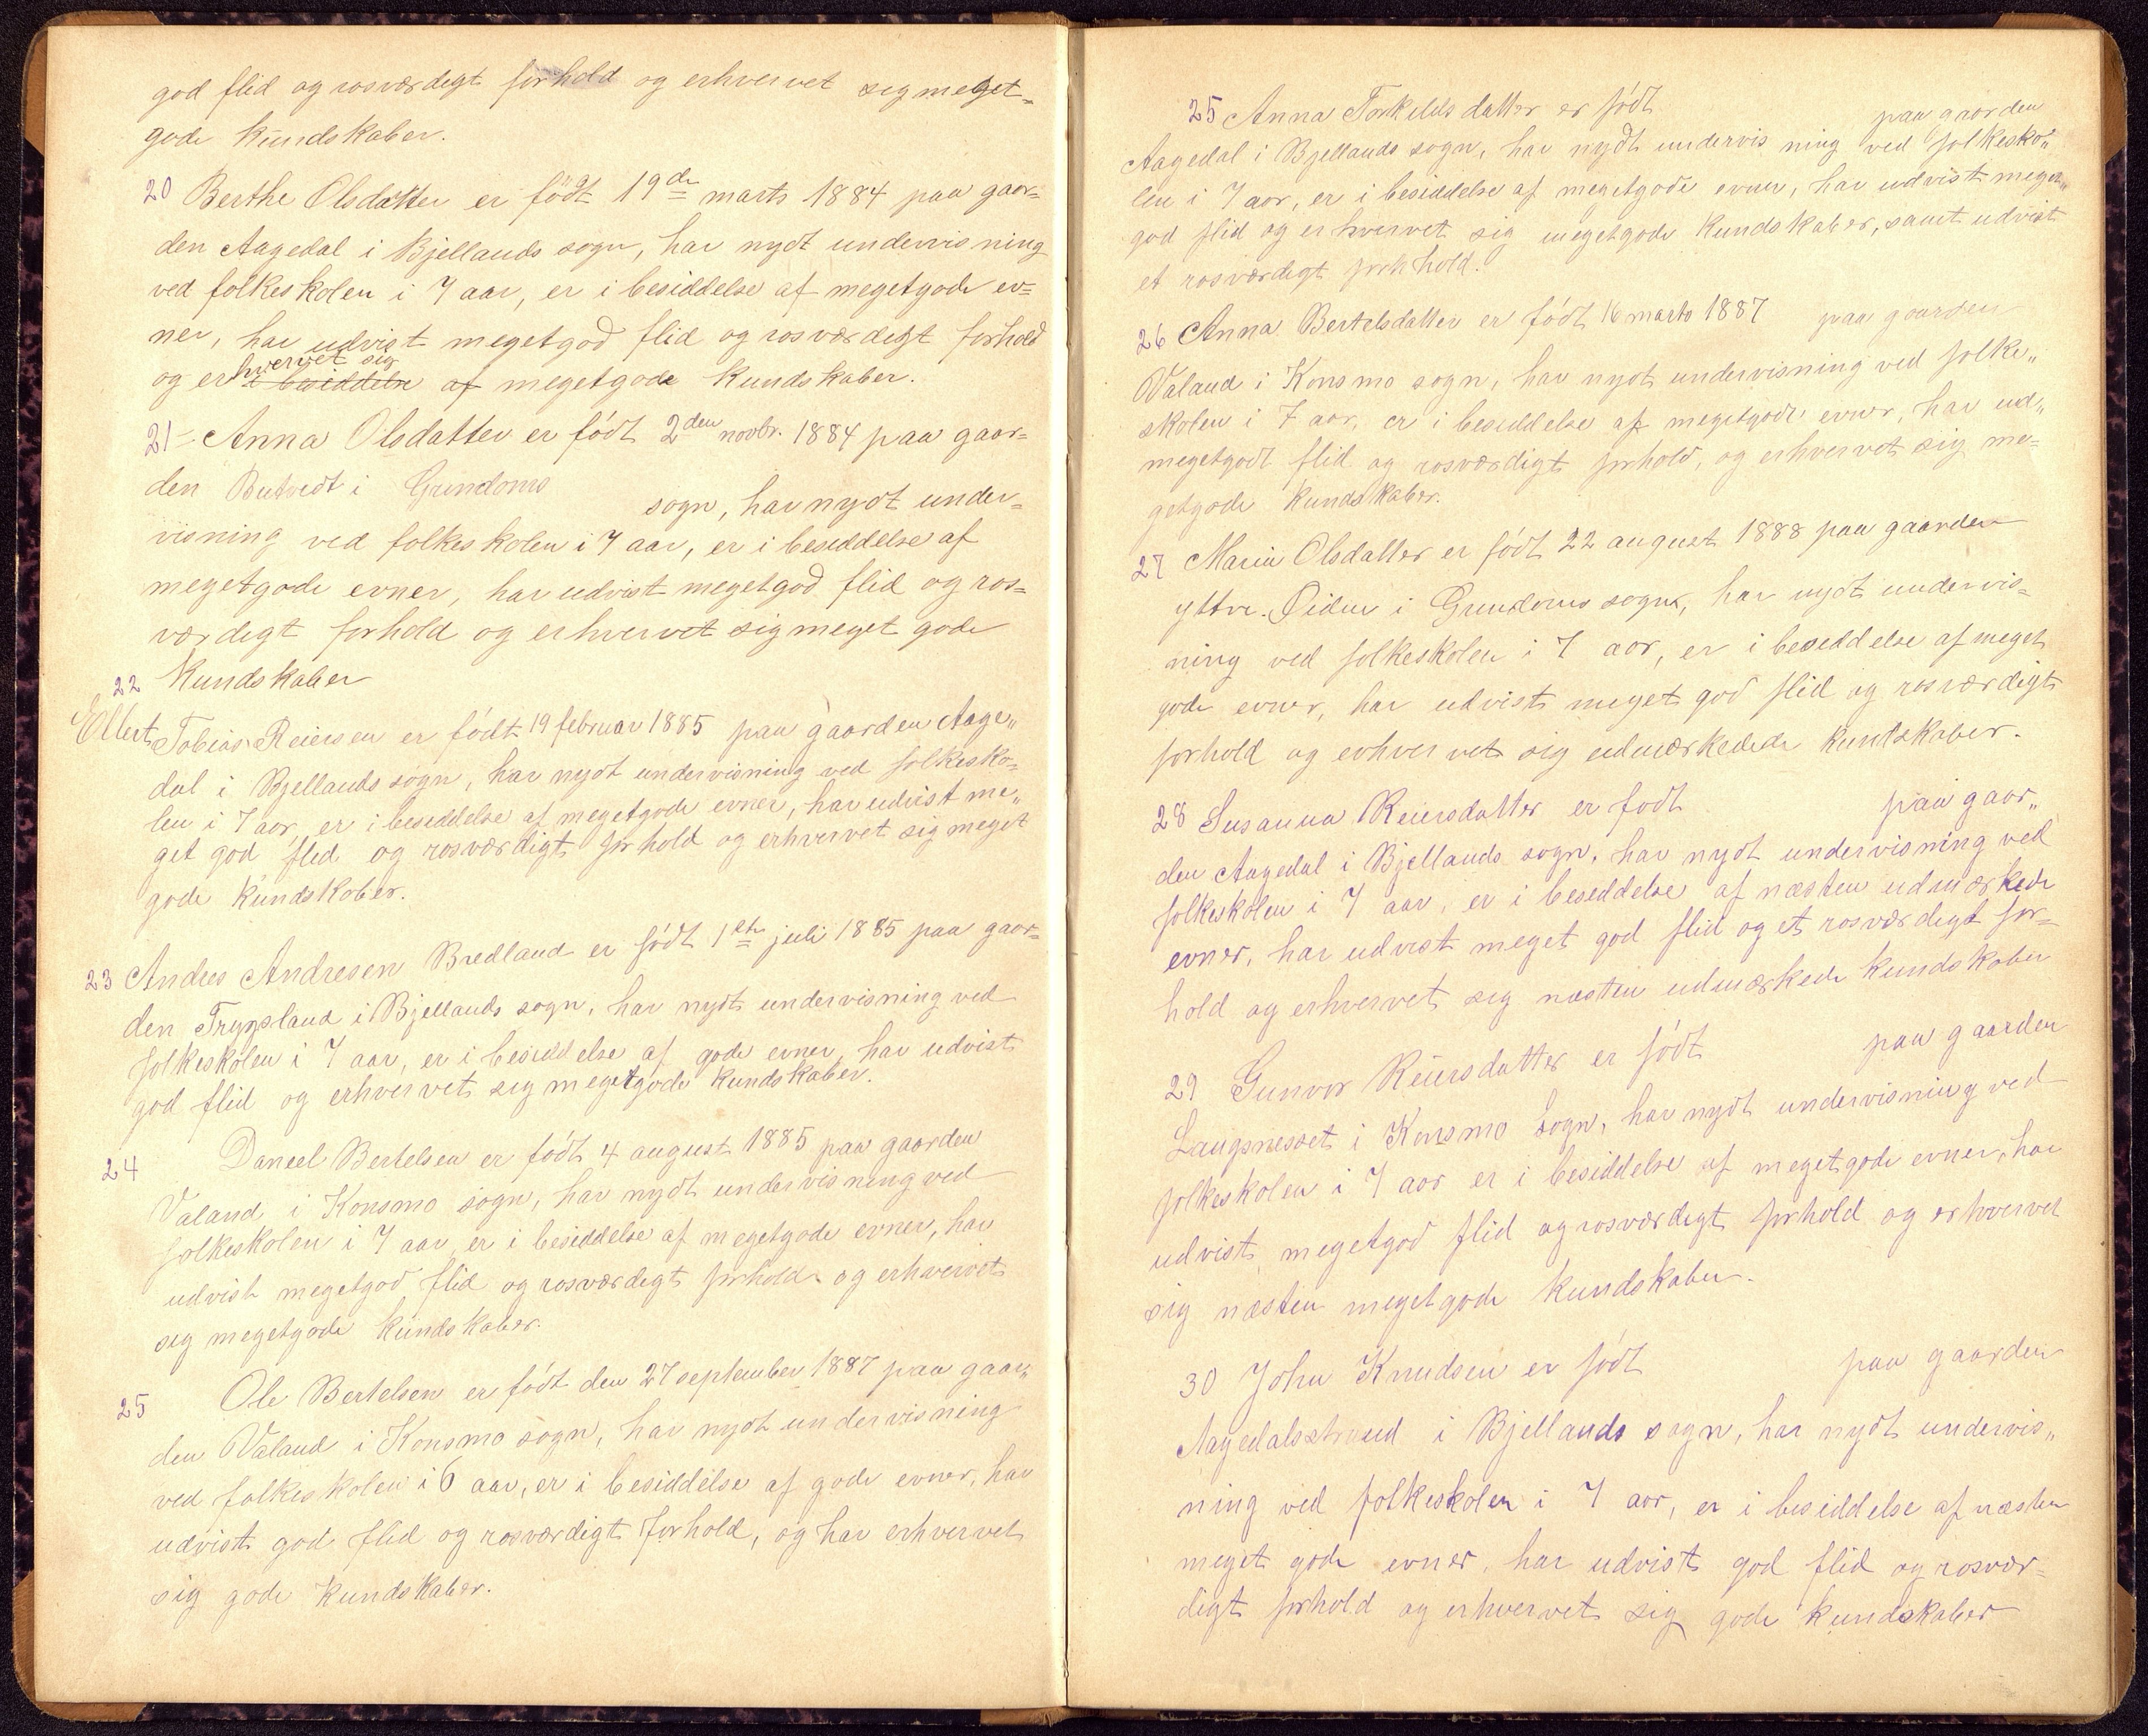 god flid og rosværdigt forhold og erhvervet sig meget=
gode kundskaber.
20 Berthe Olsdatter er født 19de marts 1884 paa gaar=
den Aagedal i Bjellands sogn, har nydt undervisning
ved folkeskolen i 7 aar, er i besiddelse af megetgode ev=
ner, har udvist megetgod flid og rosværdigt forhold
hvervet sig
og er i besiddelse af megetgode kundskaber.
21 = Anna Olsdatter er født 2den novbr. 1884 paa gaar=
den Butvedt i Grundoms sogn, har nydt under=
visning ved folkeskolen i 7 aar, er i besiddelse af
megetgode evner, har udvist megetgod flid og ros=
værdigt forhold og erhvervet sig meget gode
kundskaber
22
Ellert Tobias Reiersen er født 19 februar 1885 paa gaarden Aage„
dal i Bjellands sogn, har nydt undervisning ved folkesko=
len i 7 aar, er i besiddelse af megetgode evner, har udvist me„
get god flid og rosværdigt forhold og erhvervet sig meget
gode kundskaber.
23 Andres Andresen Bredland er født 1ste juli 1885 paa gaar=
den Trygsland i Bjellands sogn, har nydt undervisning ved
folkeskolen i 7 aar, er i besiddelse af gode evner, har udvist
god flid og erhvervet sig megetgode kundskaber.
24 Daneel Bertelsen er født 4 august 1885 paa gaarden
Valand i Konsmo sogn, har nydt undervisning ved
folkeskolen i 7 aar er i besiddelse af megetgode evner, har
udvist megetgod flid og rosværdigt forhold og erhvervet
sig megetgode kundskaber.
25 Ole Bertelsen er født den 27 september 1887 paa gaar„
den Valand i Konsmo sogn, har nydt undervisning
ved folkeskolen i 6 aar, er i besiddelse af gode evner, har
udvist god flid og rosværdigt forhold, og har erhvervet
sig gode kundskaber.
25 Anna Torkeldsdatter er født paa gaarden
Aagedal i Bjellands sogn, har nydt undervisning ved folkesko„
len i 7 aar, er i besiddelse af megetgode evner, har udvist meget„
god flid og erhvervet sig megetgode kundskaber, samt udvist
et rosværdigt forhhold.
26 Anna Bertelsdatter er født 16 marts 1887 paa gaarden
Valand i Konsmo sogn, har nydt undervisning ved folke„
skolen i 7 aar, er i besiddelse af megetgode evner, har ud„
megetgodt flid og rosværdigt forhold, og erhvervet sig me=
getgode kundskaber.
27 Marie Olsdatter er født 22 august 1888 paa gaarden
yttre. Øidne i Grundoms sogn, har nydt undervis=
ning ved folkeskolen i 7 aar, er i besiddelse af meget
gode evner, har udvist meget god flid og rosværdigt
forhold og erhvervet sig udmærkedede kundskaber.
28 Susanna Reiersdatter er født paa gaar„
den Aagedal i Bjellands sogn, har nydt undervisning ved
folkeskolen i 7 aar, er i besiddelse af næsten udmærkede
evner, har udvist meget god flid og et rosværdigt for=
hold og erhvervet sig næsten udmærkede kundskaber
29 Gunvor Reiersdatter er født paa gaarden
Laugsnesset i Konsmo sogn, har nydt undervisning ved
folkeskolen i 7 aar er i besiddelse af megetgode evner, har
udvist megetgod flid og rosværdigt forhold og erhvervet
sig næsten megetgode kundskaber.
30 John Knudsen er født paa gaarden
Aagedalsstrand i Bjellands sogn, har nydt undervis„
ning ved folkeskolen i 7 aar, er i besiddelse af næsten
meget gode evner, har udvist god flid og rosvær=
digt forhold og erhvervet sig gode kundskaber